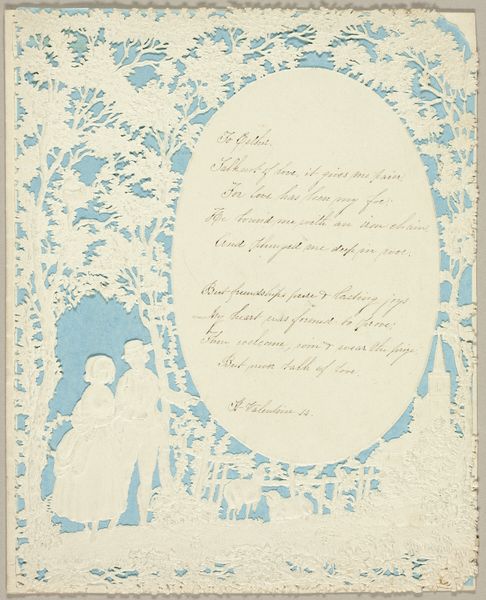 To Esther.
Talk not of love, it gives me pain,
For love has been my foe;
He bound me with an iron chain,
And plunged me deep in woe.
But friendship's pure & lasting joys
My heart was formed to prove;
Then welcome, win & wear the prize,
But never talk of love.
St Valentine 14.